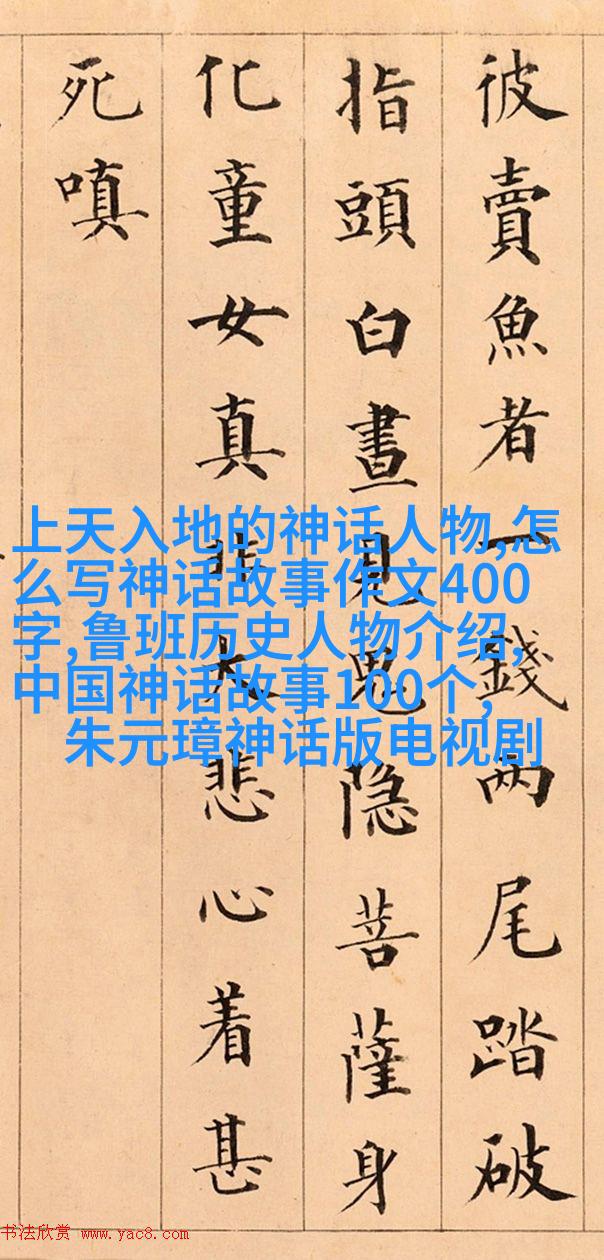 彼賣魚者一錢兩尾踏破
指頭白晝見鬼隐菩薩身
化童女真非大悲心着甚
死嗔
上天入地的神话人物,怎
么写神话故事作文400
字,鲁班历史人物介绍,
中国神话故事100个,
朱元璋神话版电视剧
书法欣赏 www.yac8.com